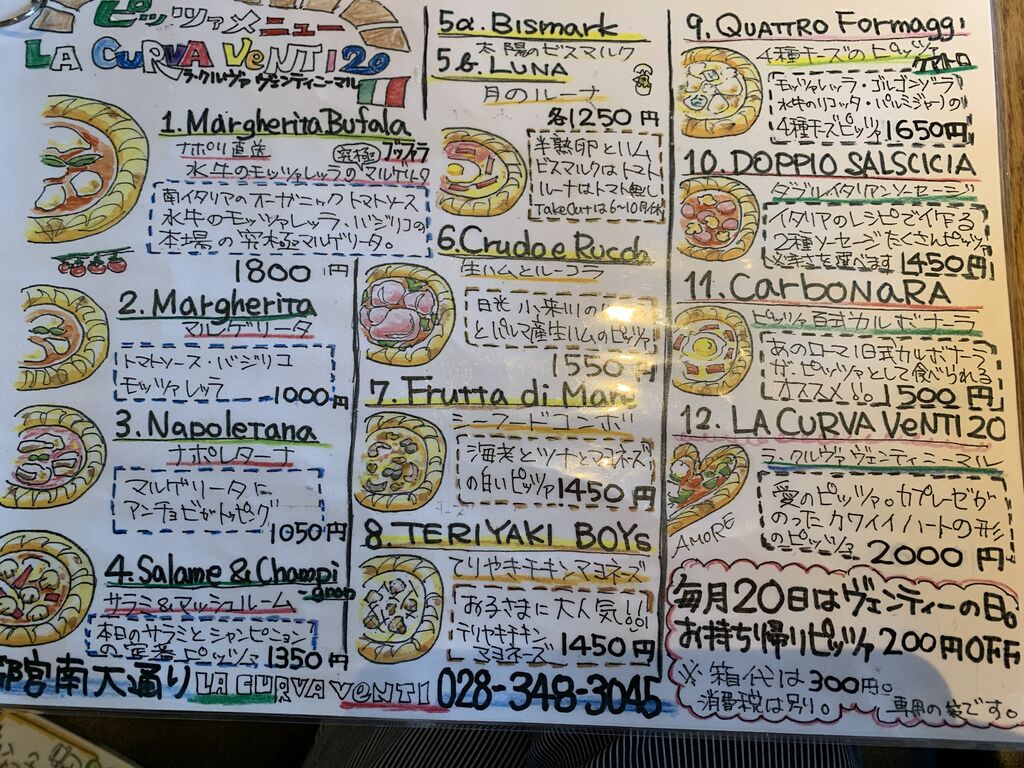 ピッツァメニュー
LA CURVA VENTI 20
ラ・クルヴァ ヴェンティニーマル
1. Margherita Bufala
ナポリ直送 究極 ブッファラ
水牛のモッツァレッラのマルゲリータ
南イタリアのオーガニックトマトソース
水牛のモッツァレッラ、バジリコの
本場の究極マルゲリータ。
1800円
2. Margherita
マルゲリータ
トマトソース・バジリコ
モッツァレッラ
1000円
3. Napoletana
ナポレターナ
マルゲリータに
アンチョビがトッピング
1050円
4. Salame & Champi
サラミ&マッシュルーム
本日のサラミとシャンピニョン
の定番ピッツァ 1350円
5a. Bismark
太陽のビスマルク
5b. LUNA
月のルーナ
各1250円
半熟卵とハム
ビスマルクはトマト
ルーナはトマト無し
Take Outは6~10月休
6. Crudo e Rucola
生ハムとルーコラ
日光 小来川の
とパルマ産生ハムのピッツァ
1550円
7. Frutta di Mare
シーフードコンボ
海老とツナとマヨネーズ
の白いピッツァ 1450円
8. TERIYAKI BOYs
てりやきチキンマヨネーズ
お子さまに大人気!!
テリヤキチキン
マヨネーズ 1450円
9. QUATTRO Formaggi
4種チーズのピッツァ
クアトロ
モッツァレッラ・ゴルゴンゾーラ
水牛のリコッタ・パルミジャーノの
4種チーズピッツァ 1650円
10. DOPPIO SALSCICIA
ダブルイタリアンソーセージ
イタリアのレシピで作る
2種ソーセージたくさんピッツァ
辛さを選べます 1450円
11. CarboNARA
ピッツァ百式カルボナーラ
あのローマ旧式カルボナーラ
が、ピッツァとして食べられる
オススメ!!。 1500円
12. LA CURVA VeNTI 20
ラ・クルヴァ ヴェンティニーマル
愛のピッツァ。カプレーゼが
のったカワイイハートの形
のピッツァ 2000円
AMORE
毎月20日はヴェンティーの日。
お持ち帰りピッツァ 200円OFF
※箱代は300円。
消費税は別り。 専用の袋です。
都宮南大通り LA CURVA VENTI 028-348-3045